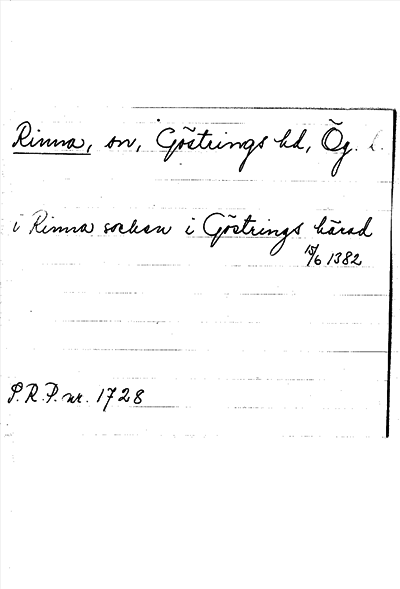 Rinna, sn, Göstrings hd, Ög. l.
i Rinna sockan i Göstrings härad
15/6 1382
S.R.P. nr. 1728